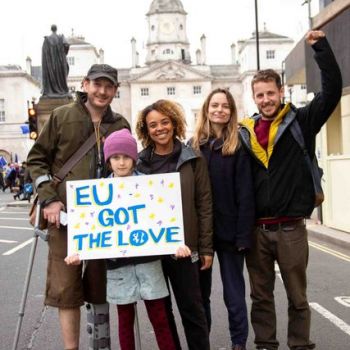 EU -
GOT
THE LOVE